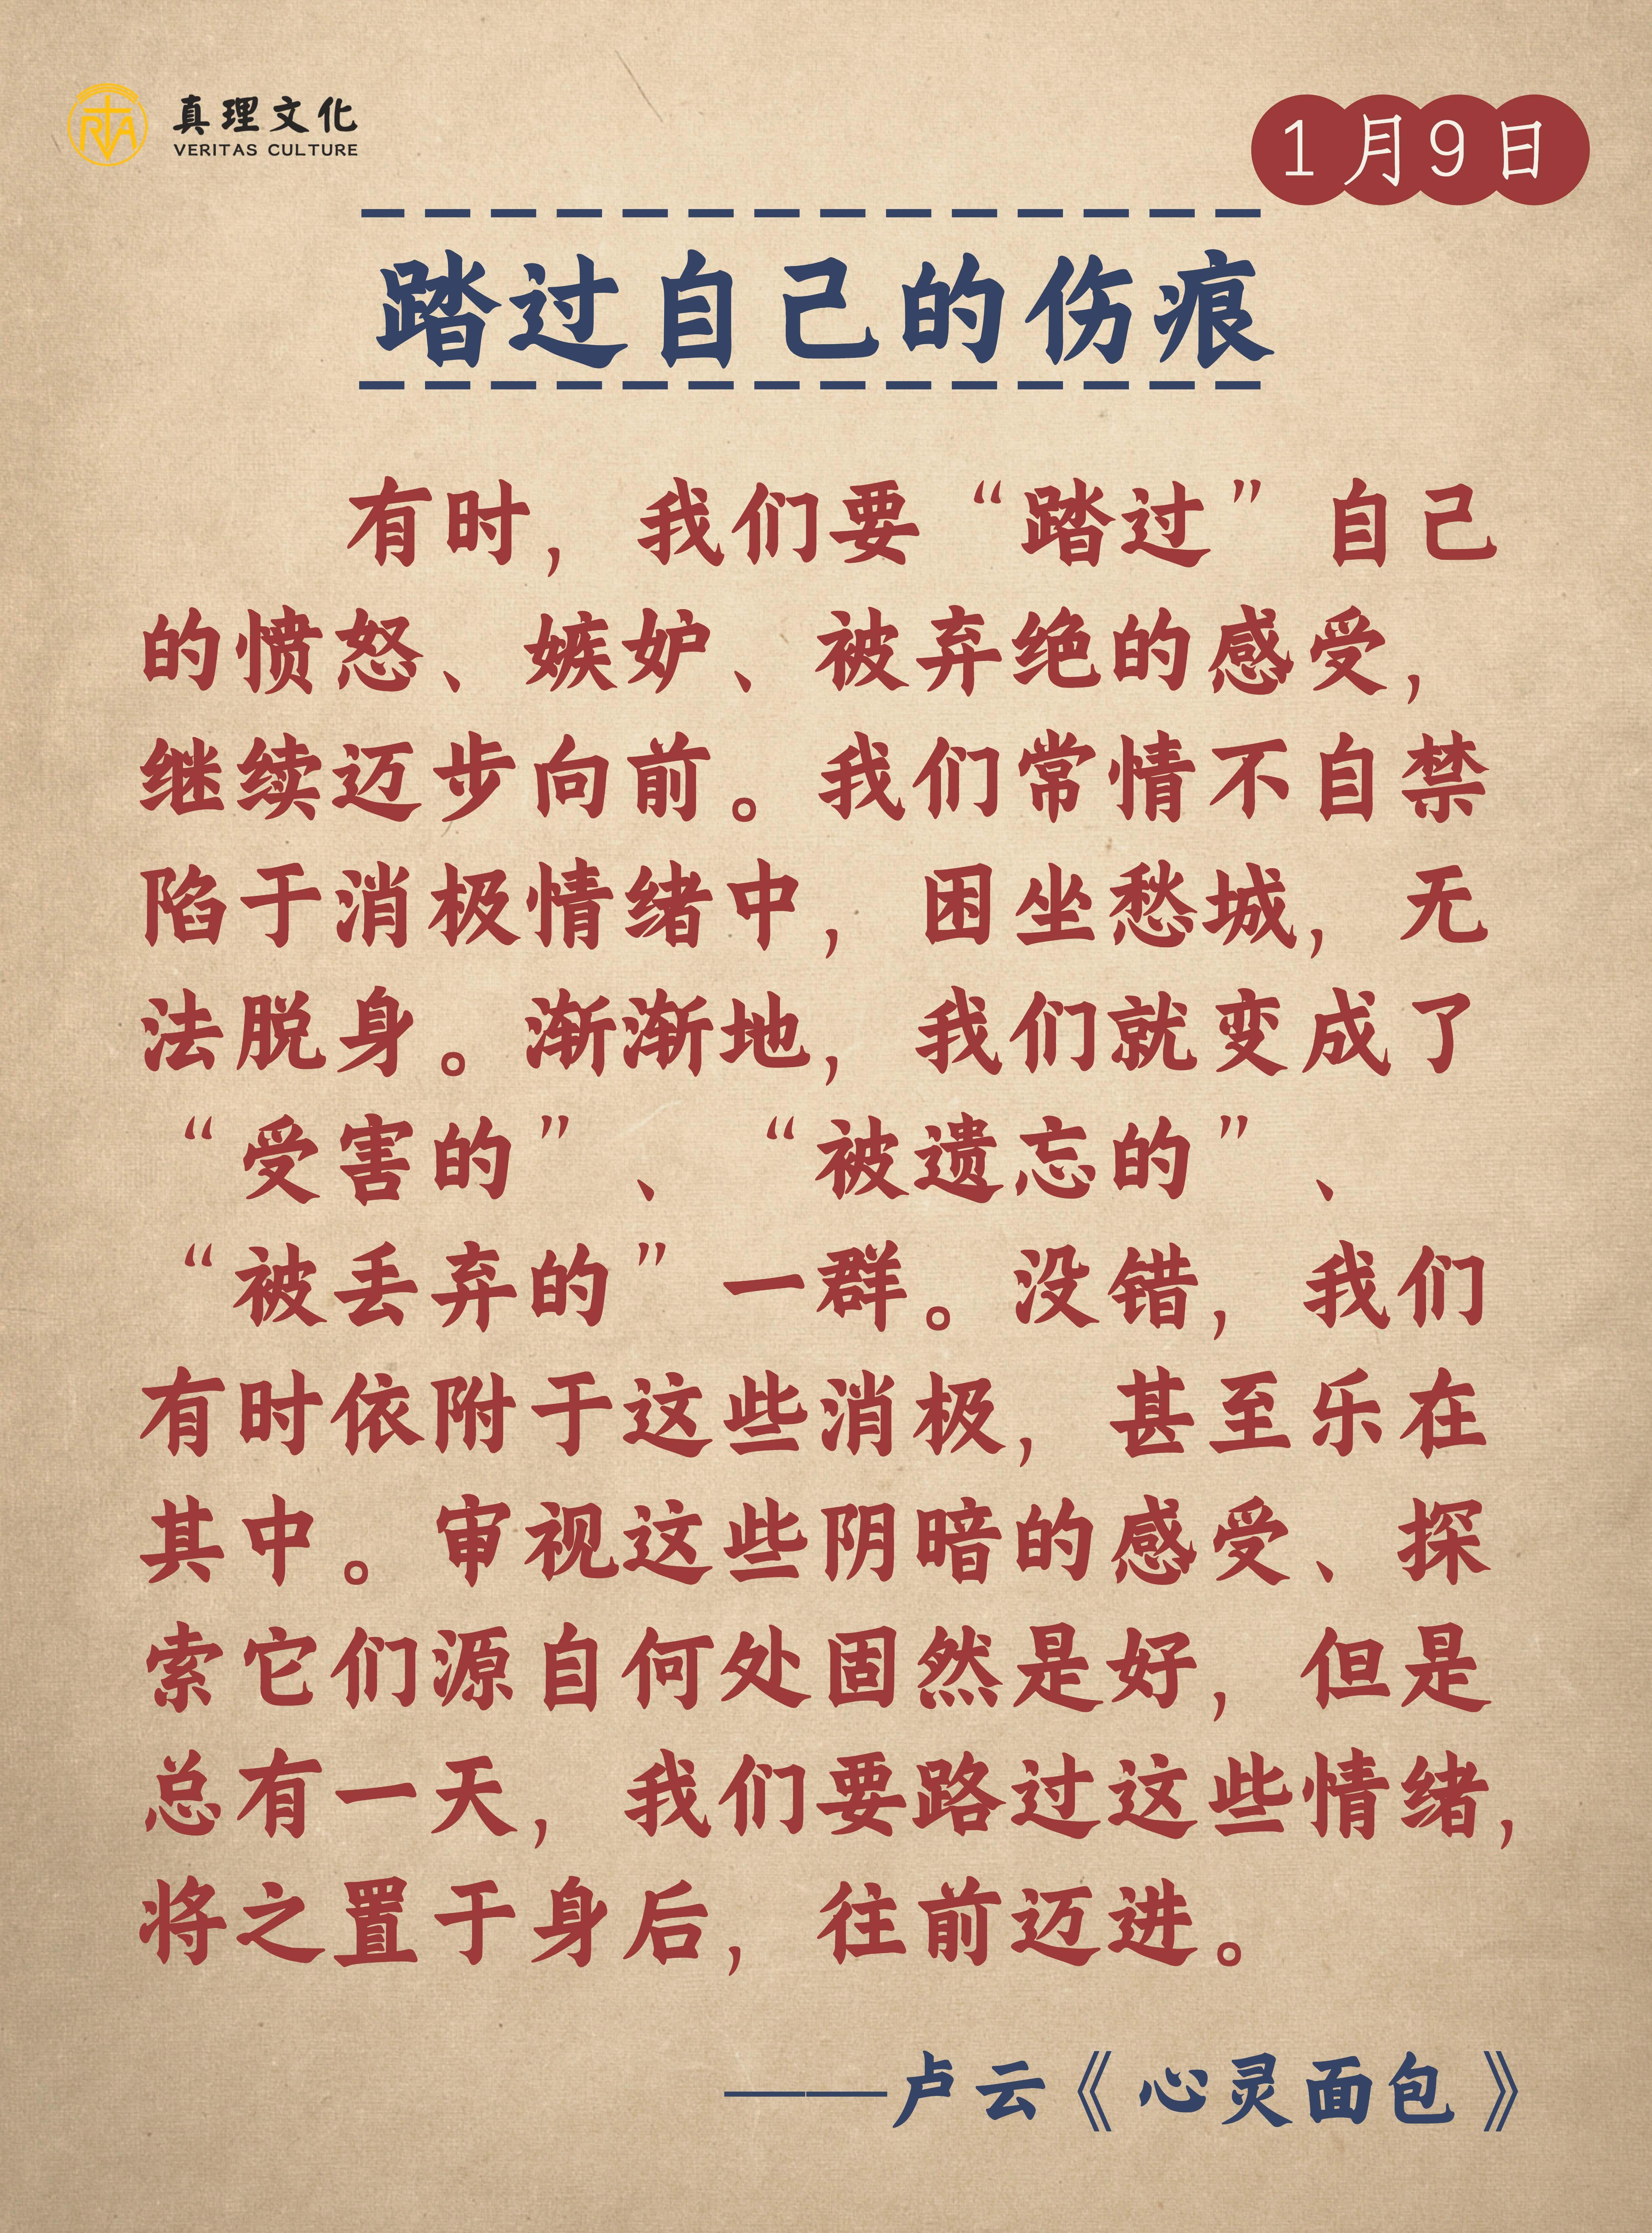 真理文化
VERITAS CULTURE
1月9日
踏过自己的伤痕
有时，我们要“踏过”自己
的愤怒、嫉妒、被弃绝的感受，
继续迈步向前。我们常情不自禁
陷于消极情绪中，困坐愁城，无
法脱身。渐渐地，我们就变成了
“受害的”、“被遗忘的”、
“被丢弃的”一群。没错，我们
有时依附于这些消极，甚至乐在
其中。审视这些阴暗的感受、探
索它们源自何处固然是好，但是
总有一天，我们要路过这些情绪，
将之置于身后，往前迈进。
——卢云《心灵面包》